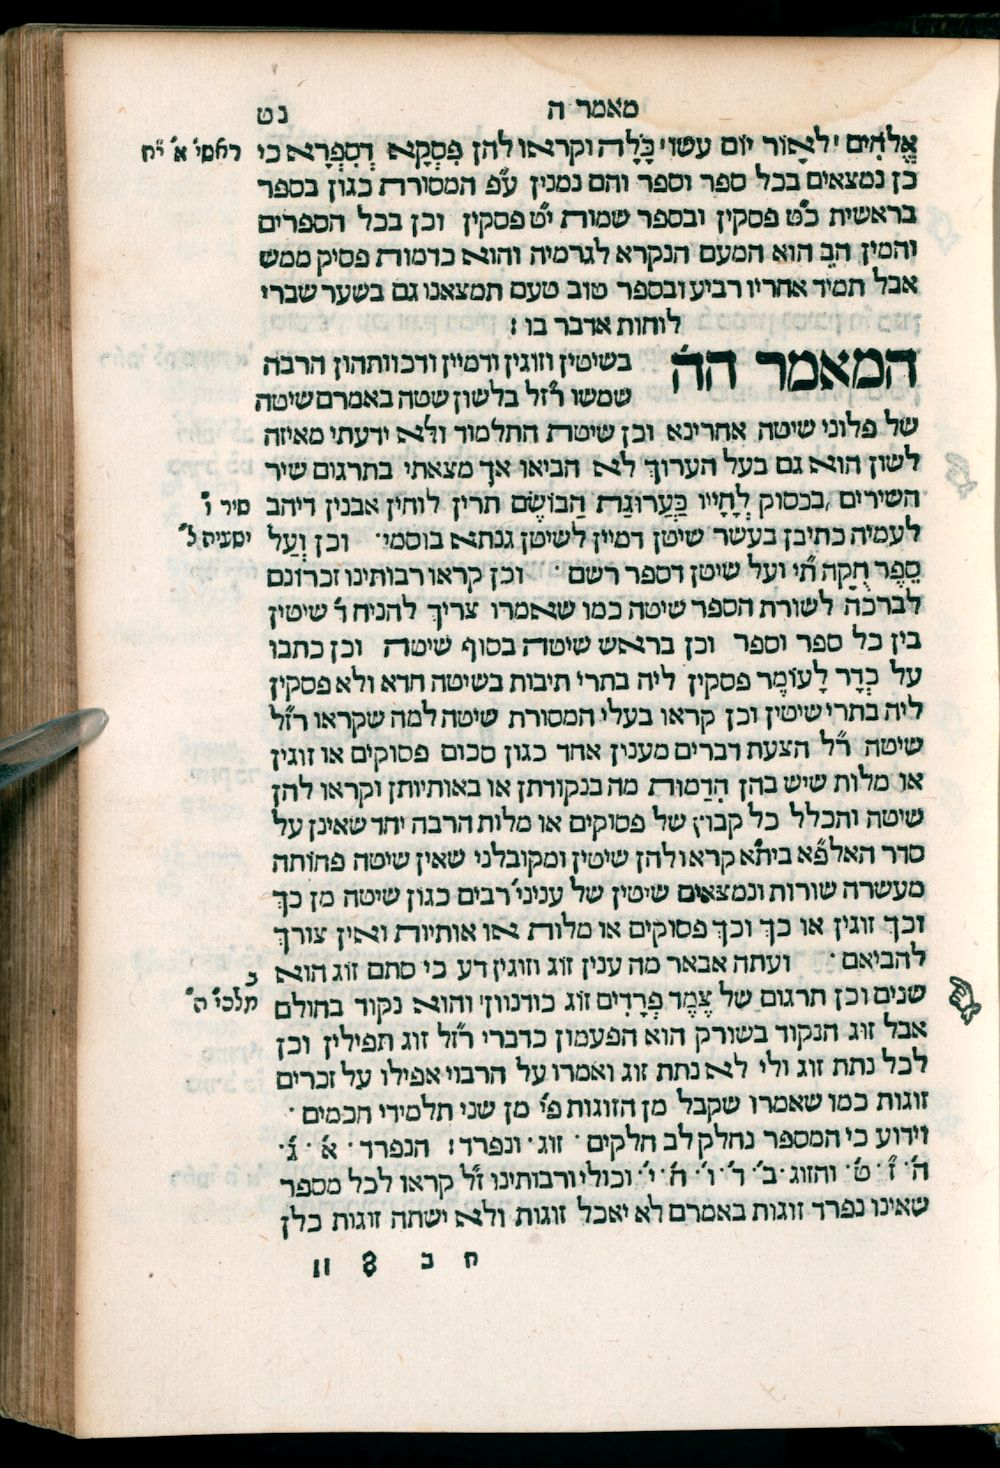 מאמר ה נט
אֱלֹהִים ׳ לְאָוֹר יוֹם עשו׳ כָּלָה וקראו להן פִּסְקָא דְסִפְרָא כי
ראשי א׳ י״ח
כן נמצאים בכל ספר וספר והם נמנין ע״פ המסורת כגון בספר
בראשית כ״ט פסקין ובספר שמות י״ט פסקין וכן בכל הספרים
והמין הב הוא המעם הנקרא לגרמיה והוא כדמות פסיק ממש
אבל תמיד אחריו רביע ובספר טוב טעם תמצאנו גם בשער שברי
לוחות אדבר בו :
המאמר הה בשיטין וזוגין ודמיין ודכוותהון הרבה
שמשו ר״זל בלשון שטה באמרם שיטה
של פלוני שיטה אחרינא וכן שיטת התלמוד ולא ידעתי מאיזה
לשון הוא גם בעל הערוך לא הביאו אך מצאתי בתרגום שיר
השירים ,בכסוק לְחָיָיו כַּעֲרוּגַת הַבּוֹשֶׂם תרין לוחין אבנין דיהב
שיר ו׳
לעמיה כתיבן בעשר שיטן דמיין לשיטן גנתא בוסמי׳ וכן וְעַל
ישעיה ל׳
סֵפֶר חֻקָּה ת״י ועל שיטן דספר רשם · וכן קראו רבותינו זכרונם
לברכה לשורת הספר שיטה כמו שאמרו צריך להניח ד׳ שיטין
בין כל ספר וספר וכן בראש שיטה בסוף שיטה וכן כתבו
על כְדָר לָעוֹמֶר פסקין ליה בתרי תיבות בשיטה חדא ולא פסקין
ליה בתרי שיטין וכן קראו בעלי המסורת שיטה למה שקראו ר״זל
שיטה ר״ל הצעת דברים מענין אחד כגון סכום פסוקים או זוגין
או מלות שיש בהן הִדַמוּת מה בנקודתן או באותיותן וקראו להן
שיטה והכלל כל קבוץ של פסוקים או מלות הרבה יחד שאינן על
סדר האלפ״א בית״א קראו להן שיטין ומקובלני שאין שיטה פחותה
מעשרה שורות ונמצאים שיטין של עניני׳ רבים כגון שיטה מן כך
וכך זוגין או כך וכך פסוקים או מלות או אותיות ואין צורך
להביאם · ועתה אבאר מה ענין זוג וזוגין דע כי סתם זוג הוא
שנים וכן תרגום של צֶמֶד פְּרָדִים זוֹג כודנוון׳ והוא נקוד בחולם
ב
מלכי׳ ה׳
אבל זוג הנקוד בשורק הוא הפעמון כדברי ר״זל זוג תפילין וכן
לכל נתת זוג ולי לא נתת זוג ואמרו על הרבוי אפילו על זכרים
זוגות כמו שאמרו שקבל מן הזוגות פי׳ מן שני תלמידי חכמים ·
וידוע כי המספר נחלק לב חלקים · זוג · ונפרד : הנפרד · א׳ · ג׳ ·
ה׳ · ז׳ · ט׳ · והזוג · ב׳ · ד׳ · ו׳ · ח׳ · י׳ · וכולי ורבותינו ז״ל קראו לכל מספר
שאינו נפרד זוגות באמרם לא יאכל זוגות ולא ישתה זוגות כלן
ח ב 8 וו